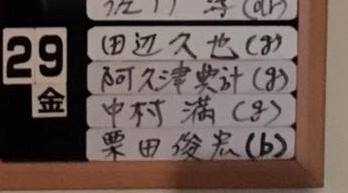 29
金
田辺久也(g)
阿久津典計(g)
中村 満(g)
栗田俊宏(b)